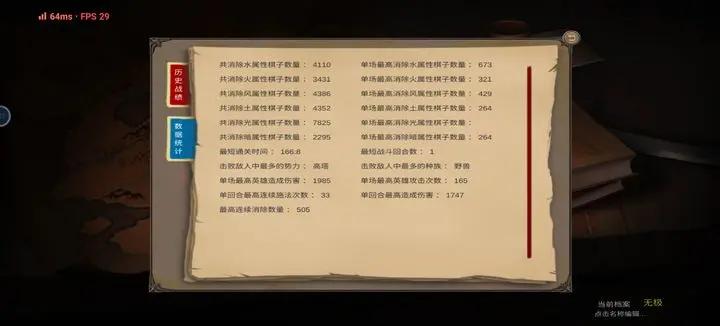 64ms · FPS 29
历史战绩
数据统计
共消除水属性棋子数量： 4110 单场最高消除水属性棋子数量： 673
共消除火属性棋子数量： 3431 单场最高消除火属性棋子数量： 321
共消除风属性棋子数量： 4386 单场最高消除风属性棋子数量： 429
共消除土属性棋子数量： 4352 单场最高消除土属性棋子数量： 264
共消除光属性棋子数量： 7825 单场最高消除光属性棋子数量：
共消除暗属性棋子数量： 2295 单场最高消除暗属性棋子数量： 264
最短通关时间： 166:8 最短战斗回合数： 1
击败敌人中最多的势力： 高塔 击败敌人中最多的种族： 野兽
单场最高英雄造成伤害： 1985 单场最高英雄攻击次数： 165
单回合最高连续施法次数： 33 单回合最高造成伤害： 1747
最高连续消除数量： 505
当前档案 无极
点击名称编辑...